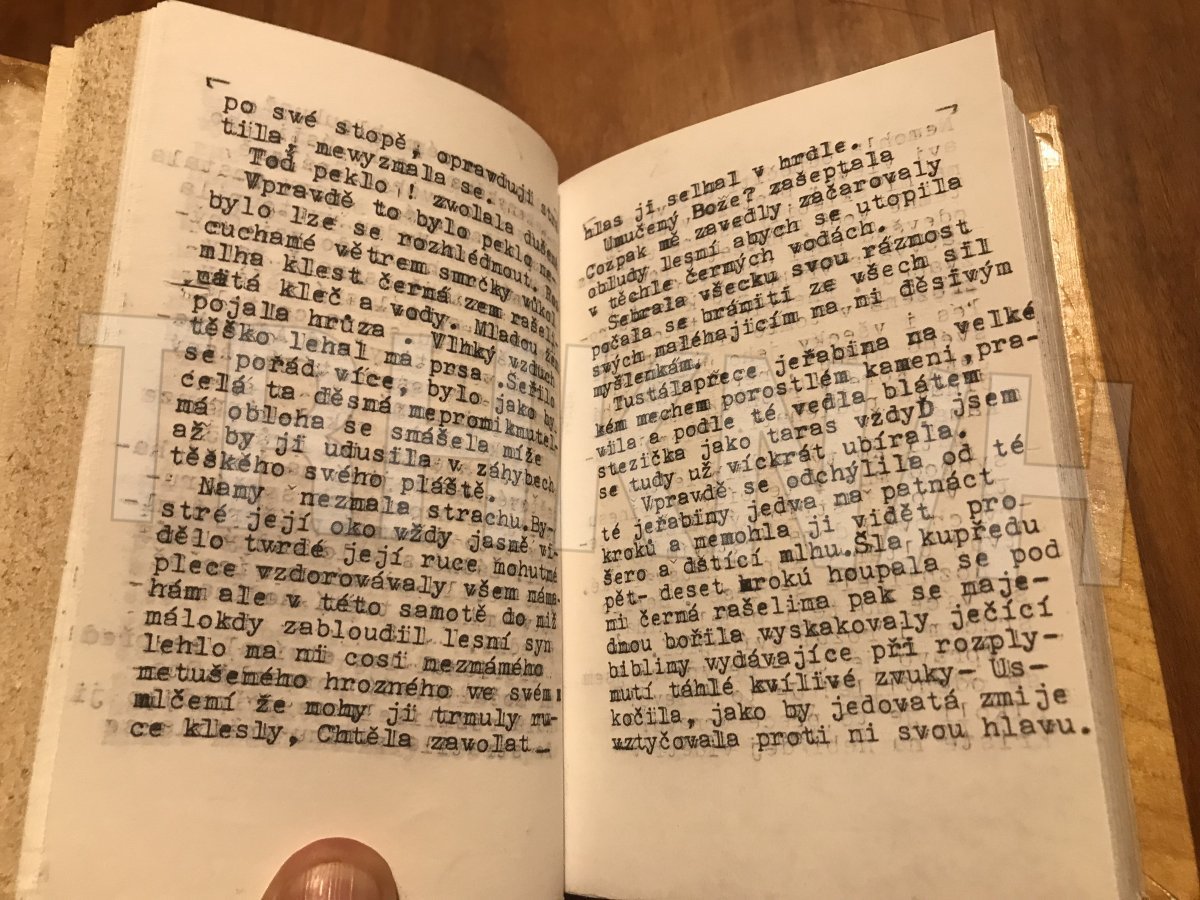 po své stopě, opravduji stra
tila, newyzmala se.
Toď peklo ! zwolala dušen
Vpravdě to bylo peklo ne-
bylo lze se rozhlédnout.
cuchamé větrem smrčky wůkol
mlha klest černá zem rašeli
natá kleč a vody. Mladou žen
pojala hrůza . Vlhký vzduch
těžko lehal má prsa .Šeřilo
se pořád více, bylo jako by
celá ta děsmá mepromiknutel-
má obloha se smášela míže
až by ji udusila v záhybech
těžkého svého pláště.
Namy nezmala strachu.By-
stré její oko vždy jasmě vi-
dělo twrdé její ruce mohutmé
plece wzdorovávaly všem máma-
hám ale v této samotě do míž
málokdy zabloudil lesní syn
lehlo ma mi cosi neznámého
metušemého hrozného ve svém
mlčení že mohy ji trmuly ru-
ce klesly, Chtěla zawolat
hlas ji selhal v hrdle.
Umučený Bože? zašeptala
Cozpak mě zavedly začarovaly
obludy lesní abych se utopila
v těchle černých wodách.
Sebrala všecku svou ráznost
počala se brániti ze všech sil
swých maléhajicím na mi děsiwým
myšlenkám.
Tustálapřece jeřabina na velké
kém mechem porostlém kameni,pra-
wila a podle té vedla blátem
stezička jako taras vždyĎ jsem
se tudy už wíckrát ubírala.
Vpravdě se odchýlila od té
té jeřabiny jedwa na patnáct
kroků a nemohla ji vidět pro
šero a dštící mlhu.Šla kupředu
pět- deset kroků houpala se pod
ni černá rašelima pak se maje-
dmou bořila wyskakovaly ječící
bibliny wydávajíce při rozply-
mutí táhlé kvílivé zvuky- Us-
kočila, jako by jedovatá zmije
wztyčovala proti ni svou hlawu.